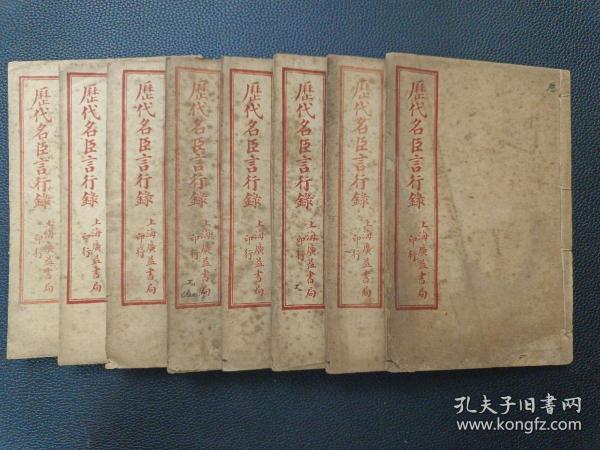 歷代名臣言行錄
上海廣益書局
印行
歷代名臣言行錄
上海廣益書局
印行
歷代名臣言行錄
上海廣益書局
印行
歷代名臣言行錄
上海廣益書局
印行
歷代名臣言行錄
上海廣益書局
印行
歷代名臣言行錄
上海廣益書局
印行
歷代名臣言行錄
上海廣益書局
印行
歷代名臣言行錄
上海廣益書局
印行
孔夫子旧书网
www.kongfz.com